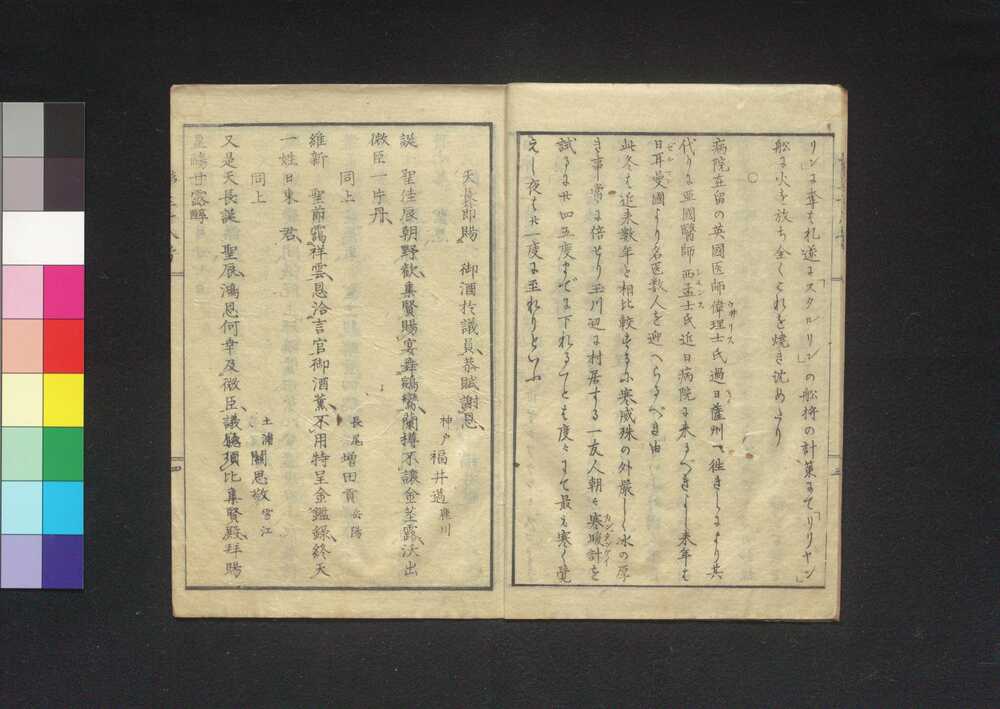 リンに奪はれ遂に「スタロリン」の船将の計策にて「リリヤン」
船に火を放ち全くこれを焼き沈めたり
○
病院在留の英國医師偉理士氏過日薩州へ往きしにより其
ウヰリス
代りに亜國醫師西孟士氏近日病院に来るべきよし来年は
シモンス
日耳曼國より名医数人を迎へらるべき由
ゼルマン
此冬は近来数年と相比較するに寒威殊の外厳しく氷の厚
き事常に倍せり玉川辺に村居する一友人朝々寒暖計を
カンダンケイ
試るに廿四五度までに下れること度々にて最も寒く覚
えし夜は廿一度に至れりといふ
天長節賜 御酒於議員恭賦謝恩
神戸 福井過 雅川
誕 聖佳辰朝野歓集賢賜宴舞鵷鸞蘭樽不讓金茎露沃出
微臣一片丹
同上
長尾 増田貢 岳陽
維新 聖節靄祥雲恩洽吉官御酒薫不用特呈金鑑録終天
一姓日東君
同上
土浦 關思敬 雪江
又是天長誕 聖辰鴻恩何幸及微臣議廳須比集賢殿拝賜
甘露醇